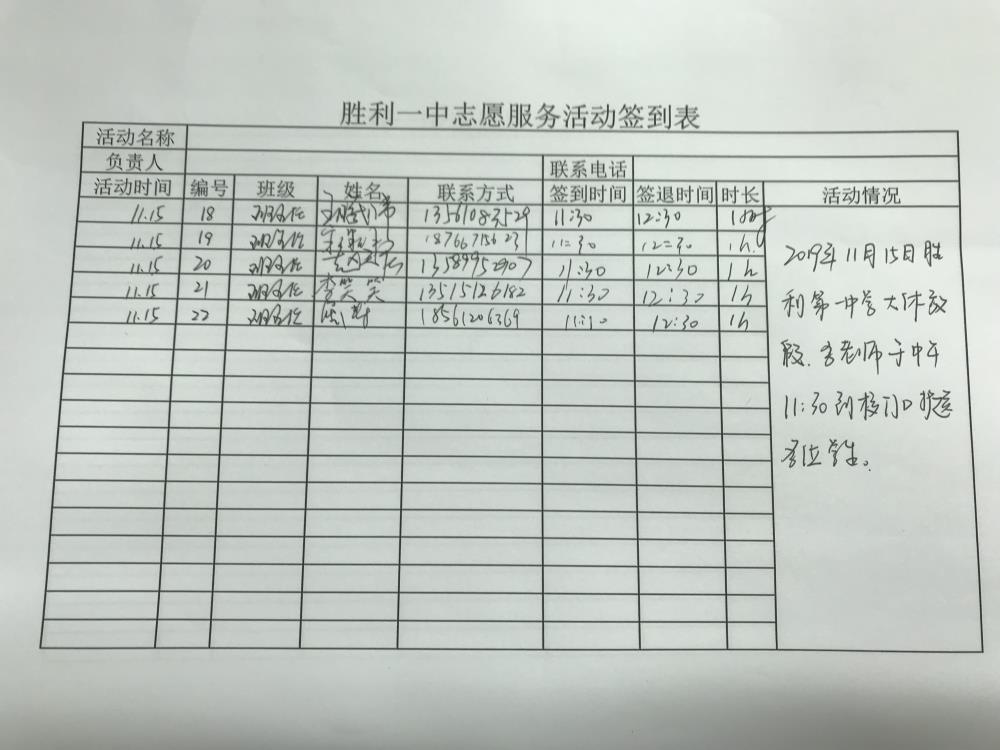 胜利一中志愿服务活动签到表
活动名称
负责人 联系电话
活动时间 编号 班级 姓名 联系方式 签到时间 签退时间 时长 活动情况
11.15 18 班主任 13561083529 11:30 12:30
11.15 19 班主任 18766715623 11:30 12:30 1h.
11.15 20 班主任 13589952907 11:30 12:30 1h
11.15 21 班主任 李笑笑 13515126182 11:30 12:30 1h
11.15 22 班主任 18561206369 12:30 1h
2019年11月15日胜
利第一中学大休放
假.各老师于中午
11:30到校门口护送
各位学生。